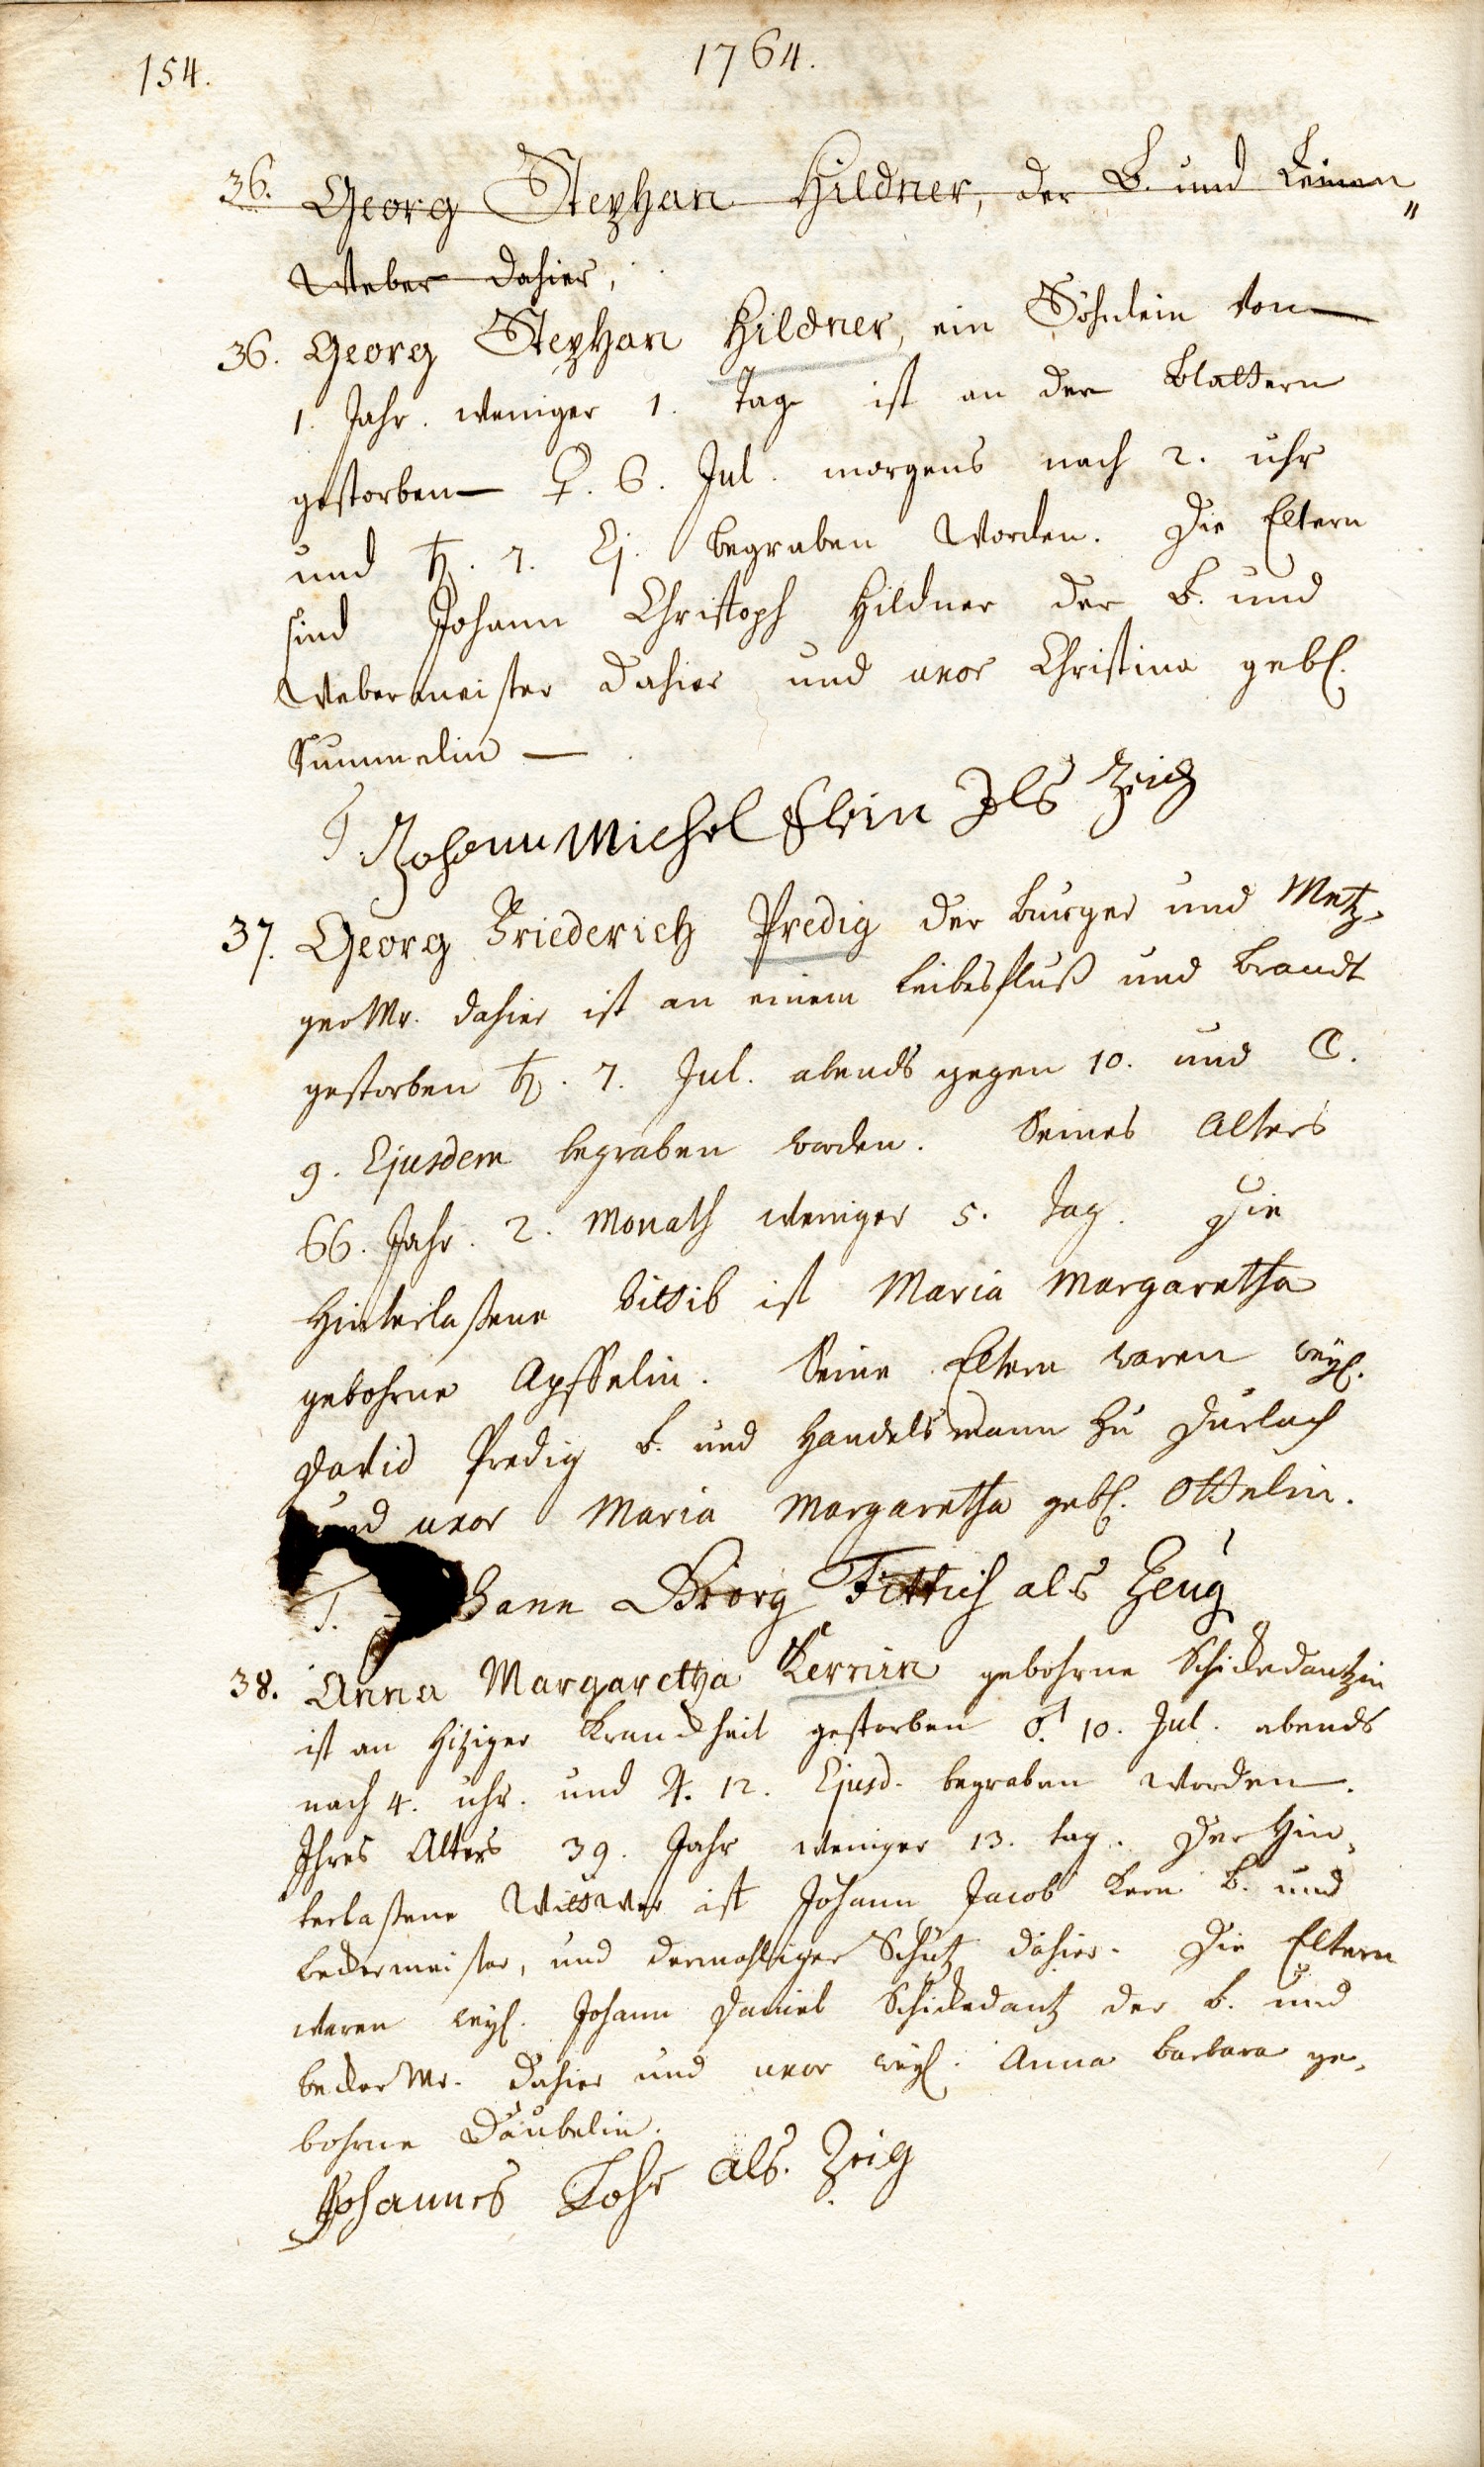 154.
1764.
36. Georg Stephan Hildner, der B. und Leinen"
Weber dahier,
36. Georg Stephan Hildner, ein Söhnlein von
1. Jahr. weniger 1. Tag ist an den Blattern
gestorben ♀. 6. Jul. morgens nach 2. uhr
und ♄. 7. Ej. begraben worden. Die Eltern
sind Johann Christoph Hildner der B. und
Webermeister dahier und uxor Christina gebl.
Summelin
T. Johann Michel als Zeig
37. Georg Friederich Predig der burger und Metz-
ger Mr. dahier ist an einem Leibesfluß und Brandt
gestorben ♄. 7. Jul. abends gegen 10. und ☾.
9. Ejusdem begraben worden. Seines Alters
66. Jahr. 2. Monath weniger 5. Tag. Die
Hinterlaßene Wittib ist Maria Margaretha
gebohrne Apffelin. Seine Eltern waren weyl.
David Predig b. und Handelsmann zu Durlach
und uxor Maria Margaretha gebl. Ottelin.
T. hann Georg Fettich als Zeug
38. Anna Margaretha Kernin gebohrne Schickedantzin
ist an hiziger Kranckheit gestorben ♂. 10. Jul. abends
nach 4. uhr. und ♃. 12. Ejusd. begraben worden.
Ihres Alters 39. Jahr weniger 13. tag. Der Hin-
terlaßene Wittwer ist Johann Jacob Kern b. und
beckermeister, und dermahliger Schütz dahier. Die Eltern
waren weyl. Johann Daniel Schickedantz der b. und
becker Mr. dahier und uxor weyl. Anna barbara ge-
bohrne Däubelin.
Johannes Lohr als. Zeig